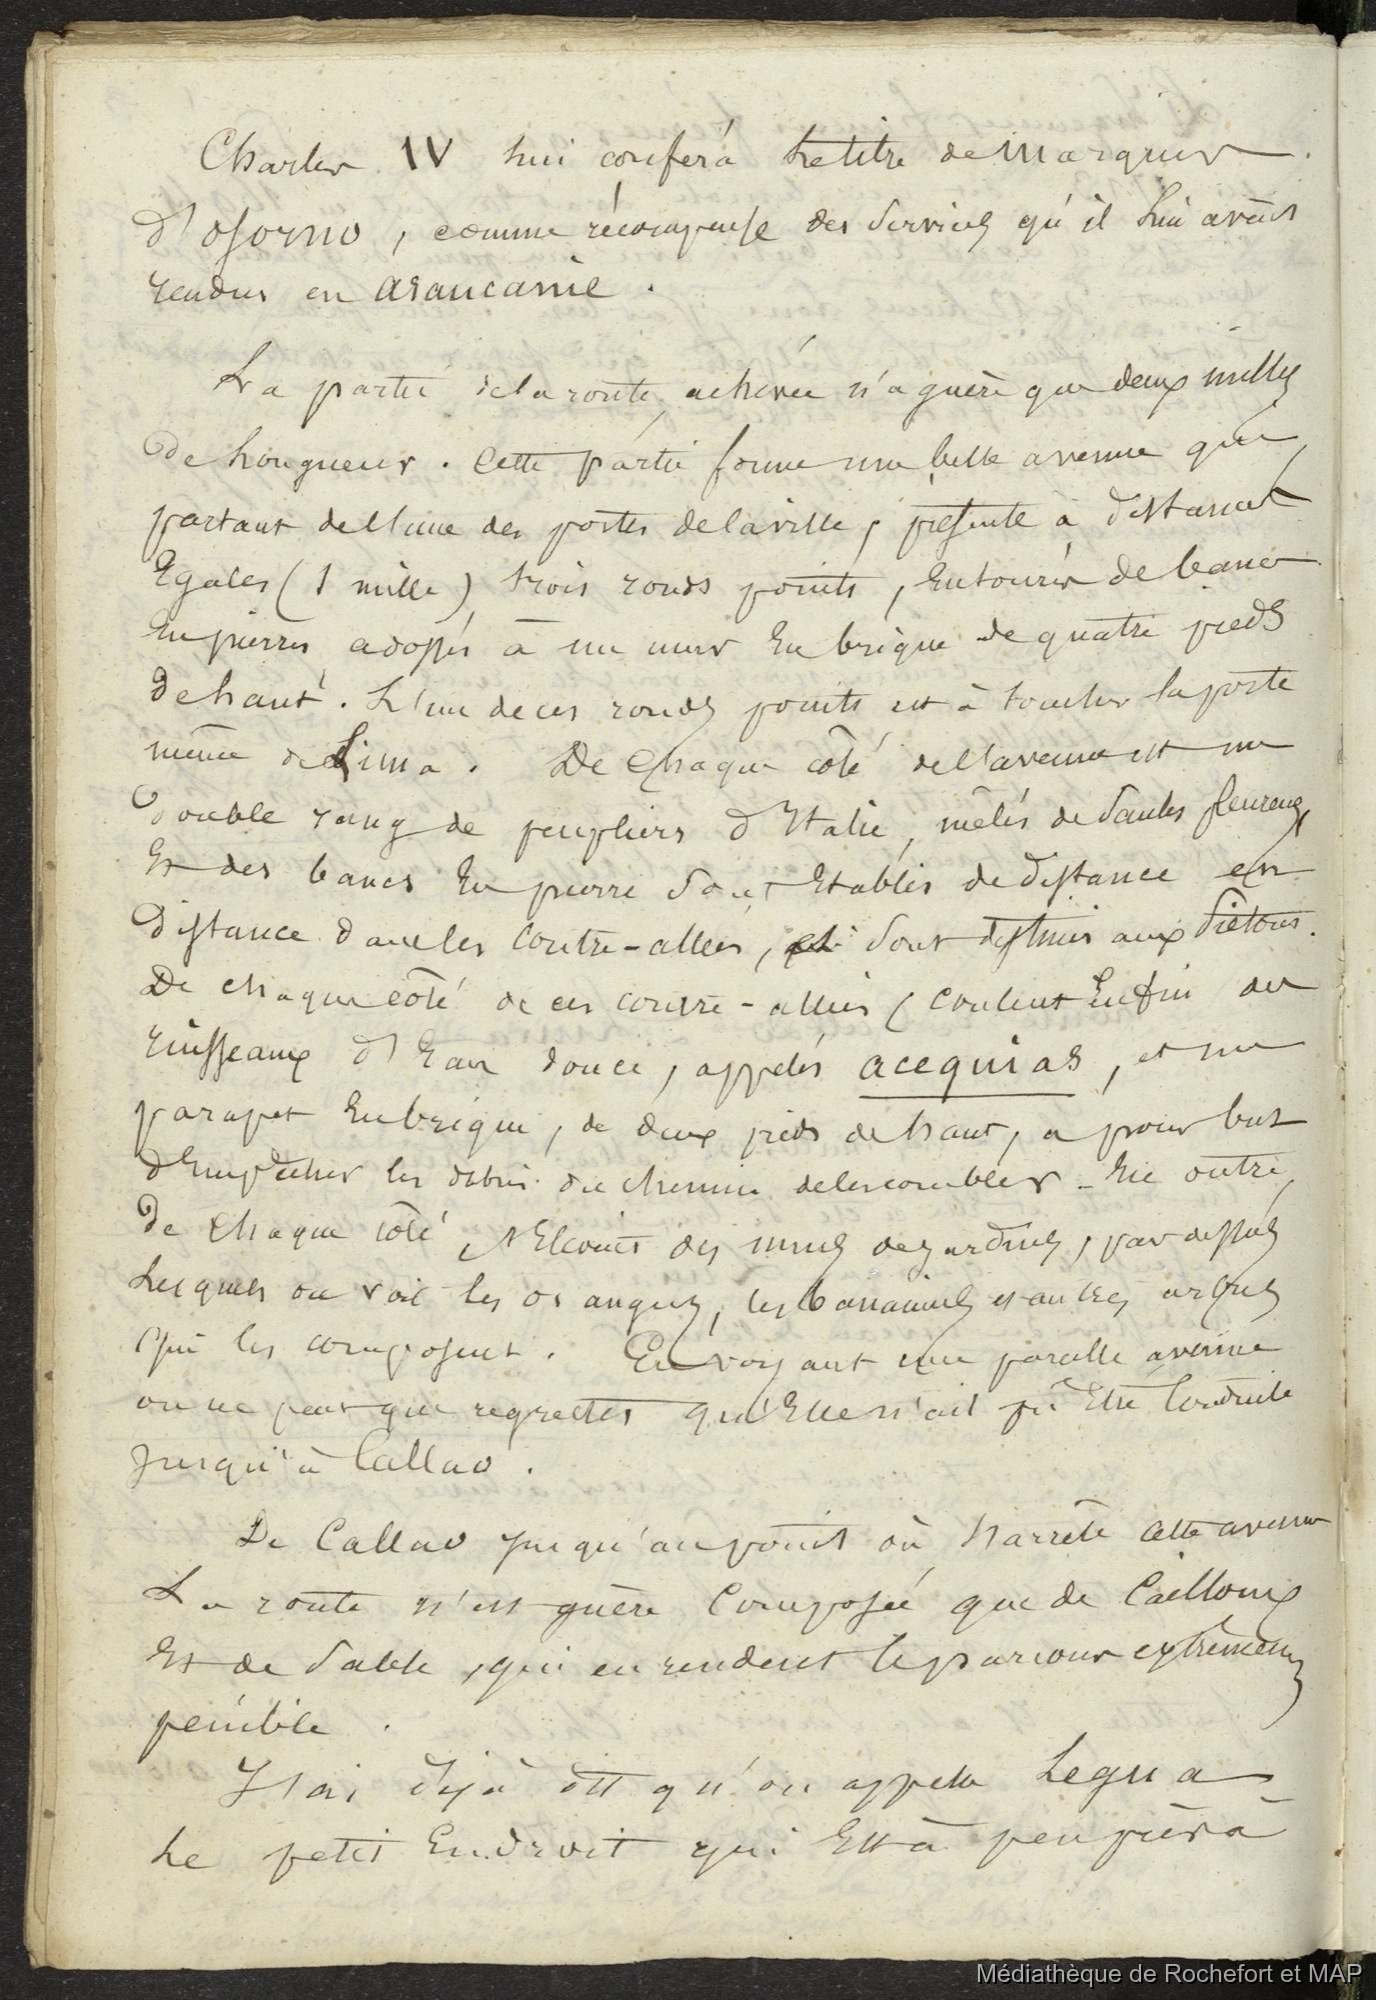 Charles IV lui conféra le titre de Marquis
d'Osorno, comme récompense des services qu'il lui avait
rendus en Araucanie.
La partie de la route achevée n'a guère que deux milles
de longueur. Cette partie forme une belle avenue qui
partant de l'une des portes de la ville, présente à distances
Egales (1 mille) trois ronds points, Entourés de bancs
En pierres adossés à un mur En brique de quatre pieds
de haut. L'un de ces ronds points est à toucher la porte
même de Lima. De chaque côté de l'avenue est un
double rang de peupliers d'Italie, mêlés de saules pleureurs
Et des bancs En pierre sont Etablis de distance en
distance dans les contre-allées, et sont destinés aux piétons.
De chaque côté de ces contre-allées coulent Enfin des
ruisseaux d'Eau douce, appelés acequias, et un
parapet En brique, de deux pieds de haut, a pour but
d'Empêcher les débris du chemin de les combler. En outre,
De chaque côté s'Elèvent des murs de jardins, par dessus
Lesquels on voit les orangers, les bananiers et autres arbres
qui les composent. En voyant une pareille avenue
on ne peut que regretter qu'Elle n'ait pu Etre conduite
jusqu'à Callao.
De Callao jusqu'au point où s'arrête cette avenue
La route n'est guère composée que de Cailloux
Et de sable, qui en rendent le parcours extrêmement
pénible.
J'ai déjà dit qu'on appelle Legua
Le petit Endroit qui Est à peu près à
Médiathèque de Rochefort et MAP